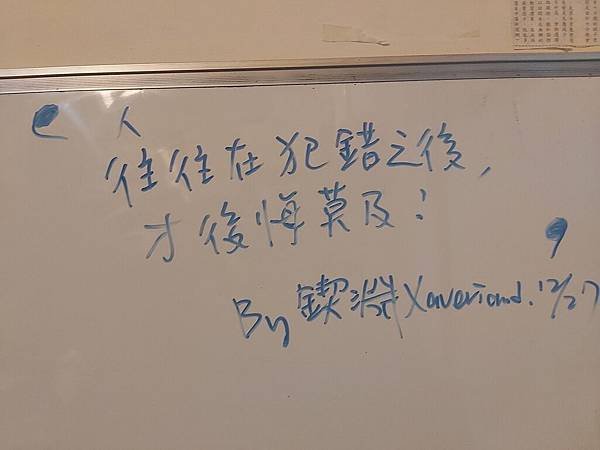 人
往往在犯錯之後,
才後悔莫及!
By 鍥淵 Xaveriand. 12/27